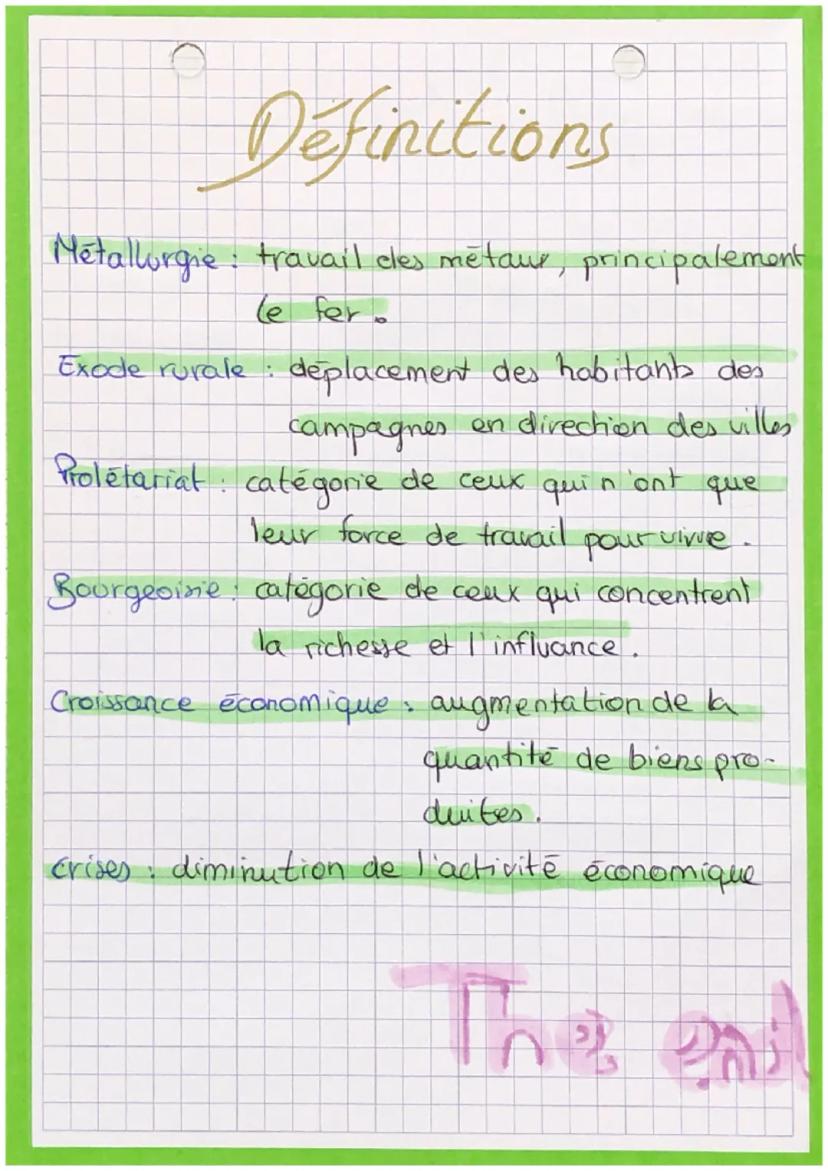 Définitions
Métallurgie : travail des métaux, principalement
le fer.
Exode rurale : déplacement des habitants des
campagnes en direction des villes
Prolétariat : catégorie de ceux qui n'ont que
leur force de travail pour vivre.
Bourgeoisie : catégorie de ceux qui concentrent
la richesse et l'influance.
Croissance économique : augmentation de la
quantité de biens pro-
duites.
Crises : diminution de l'activité économique
The end